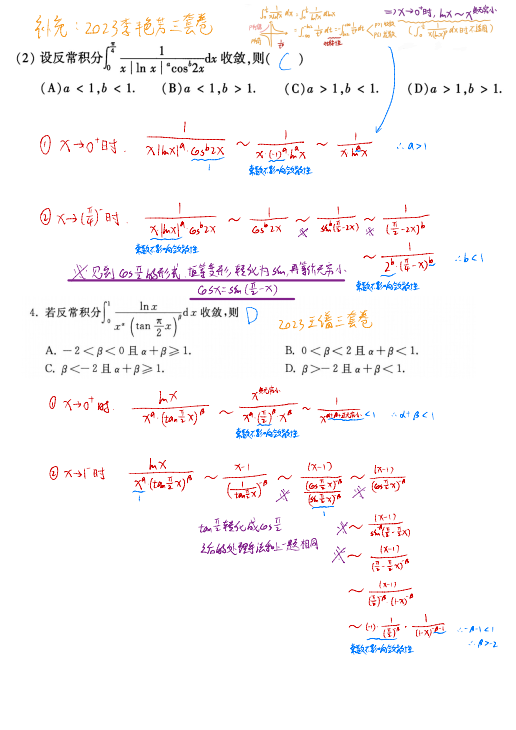 补充：2023李艳芳三套卷
=>x→0⁺时, lnx ~ x^无穷小
(2) 设反常积分∫₀^{π/4} 1/(x|ln x|^a cos^b 2x) dx 收敛,则( C )
(A) a < 1, b < 1. (B) a < 1, b > 1. (C) a > 1, b < 1. (D) a > 1, b > 1.
① x→0⁺时. 1/(x|lnx|^a·cos^b 2x) ~ 1/(x·(-1)^a ln^a x) ~ 1/(x ln^a x) ∴a>1
乘数不影响敛散性
② x→(π/4)⁻时. 1/(x|lnx|^a·cos^b 2x) ~ 1/(cos^b 2x) ~ 1/(sin^b(π/2-2x)) ~ 1/((π/2-2x)^b)
乘数不影响敛散性
~ 1/(2^b·(π/4-x)^b) ∴b<1
乘数不影响敛散性
※ 见到cos π/2 的形式 恒等变形 转化为sin,再等价无穷小
cosx=sin(π/2-x)
4. 若反常积分∫₀¹ ln x/(x^α (tan π/2 x)^β) dx 收敛,则 D
2023王婧三套卷
A. -2<β<0 且 α+β≥1. B. 0<β<2 且 α+β<1.
C. β<-2 且 α+β≥1. D. β>-2 且 α+β<1.
① x→0⁺时. lnx/(x^α·(tan π/2 x)^β) ~ x^无穷小/(x^α(π/2)^β·x^β) ~ 1/(x^{α+β+无穷小}) <1 ∴α+β<1
乘数不影响敛散性
② x→1⁻时 lnx/(x^α(tan π/2 x)^β) ~ (x-1)/((1/(tan π/2 x))^{-β}) ~ (x-1)/((cos π/2 x)^{-β}/(sin π/2 x)^{-β}) ~ (x-1)/((cos π/2 x)^{-β})
tan π/2 转化成cos π/2
之后的处理方法和上一题相同
※~ (x-1)/(sin^{-β}(π/2-π/2 x))
※~ (x-1)/((π/2-π/2 x)^{-β})
~ (x-1)/((π/2)^{-β}·(1-x)^{-β})
~ (-1)·1/((π/2)^{-β})·1/((1-x)^{-β-1}) ∴-β-1<1
乘数不影响敛散性
∴β>-2